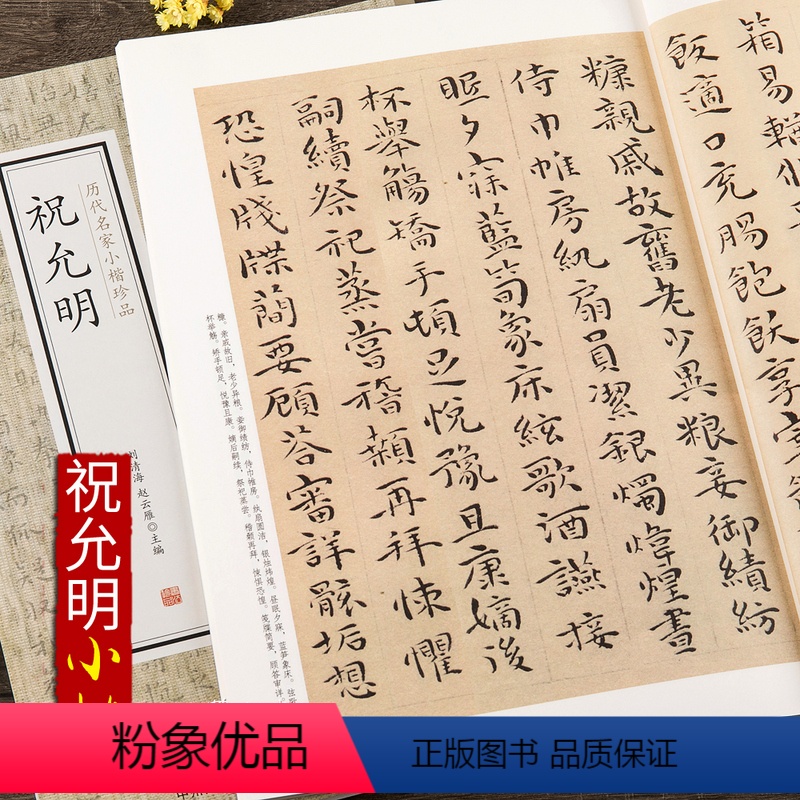 箱易輶
飯適口充腸飽飫享宰
糠親戚故舊老少異粮妾御績紡
侍巾帷房紈扇員潔銀燭煒煌晝
眠夕寐藍筍象床絃歌酒讌接
杯舉觴矯手頓足悅豫且康嫡後
嗣續祭祀蒸嘗稽顙再拜悚懼
恐惶牋牒簡要顧答審詳骸垢想
糠。亲戚故旧，老少异粮。妾御绩纺，侍巾帷房。纨扇圆洁，银烛炜煌。昼眠夕寐，蓝笋象床。弦歌
杯举觞。矫手顿足，悦豫且康。嫡后嗣续，祭祀蒸尝。稽颡再拜，悚惧恐惶。笺牒简要，顾答审详
历代名家小楷珍品
祝允明
刘清海 赵云雁◎主编
祝允明小
粉象优品
正版图书 品质保证